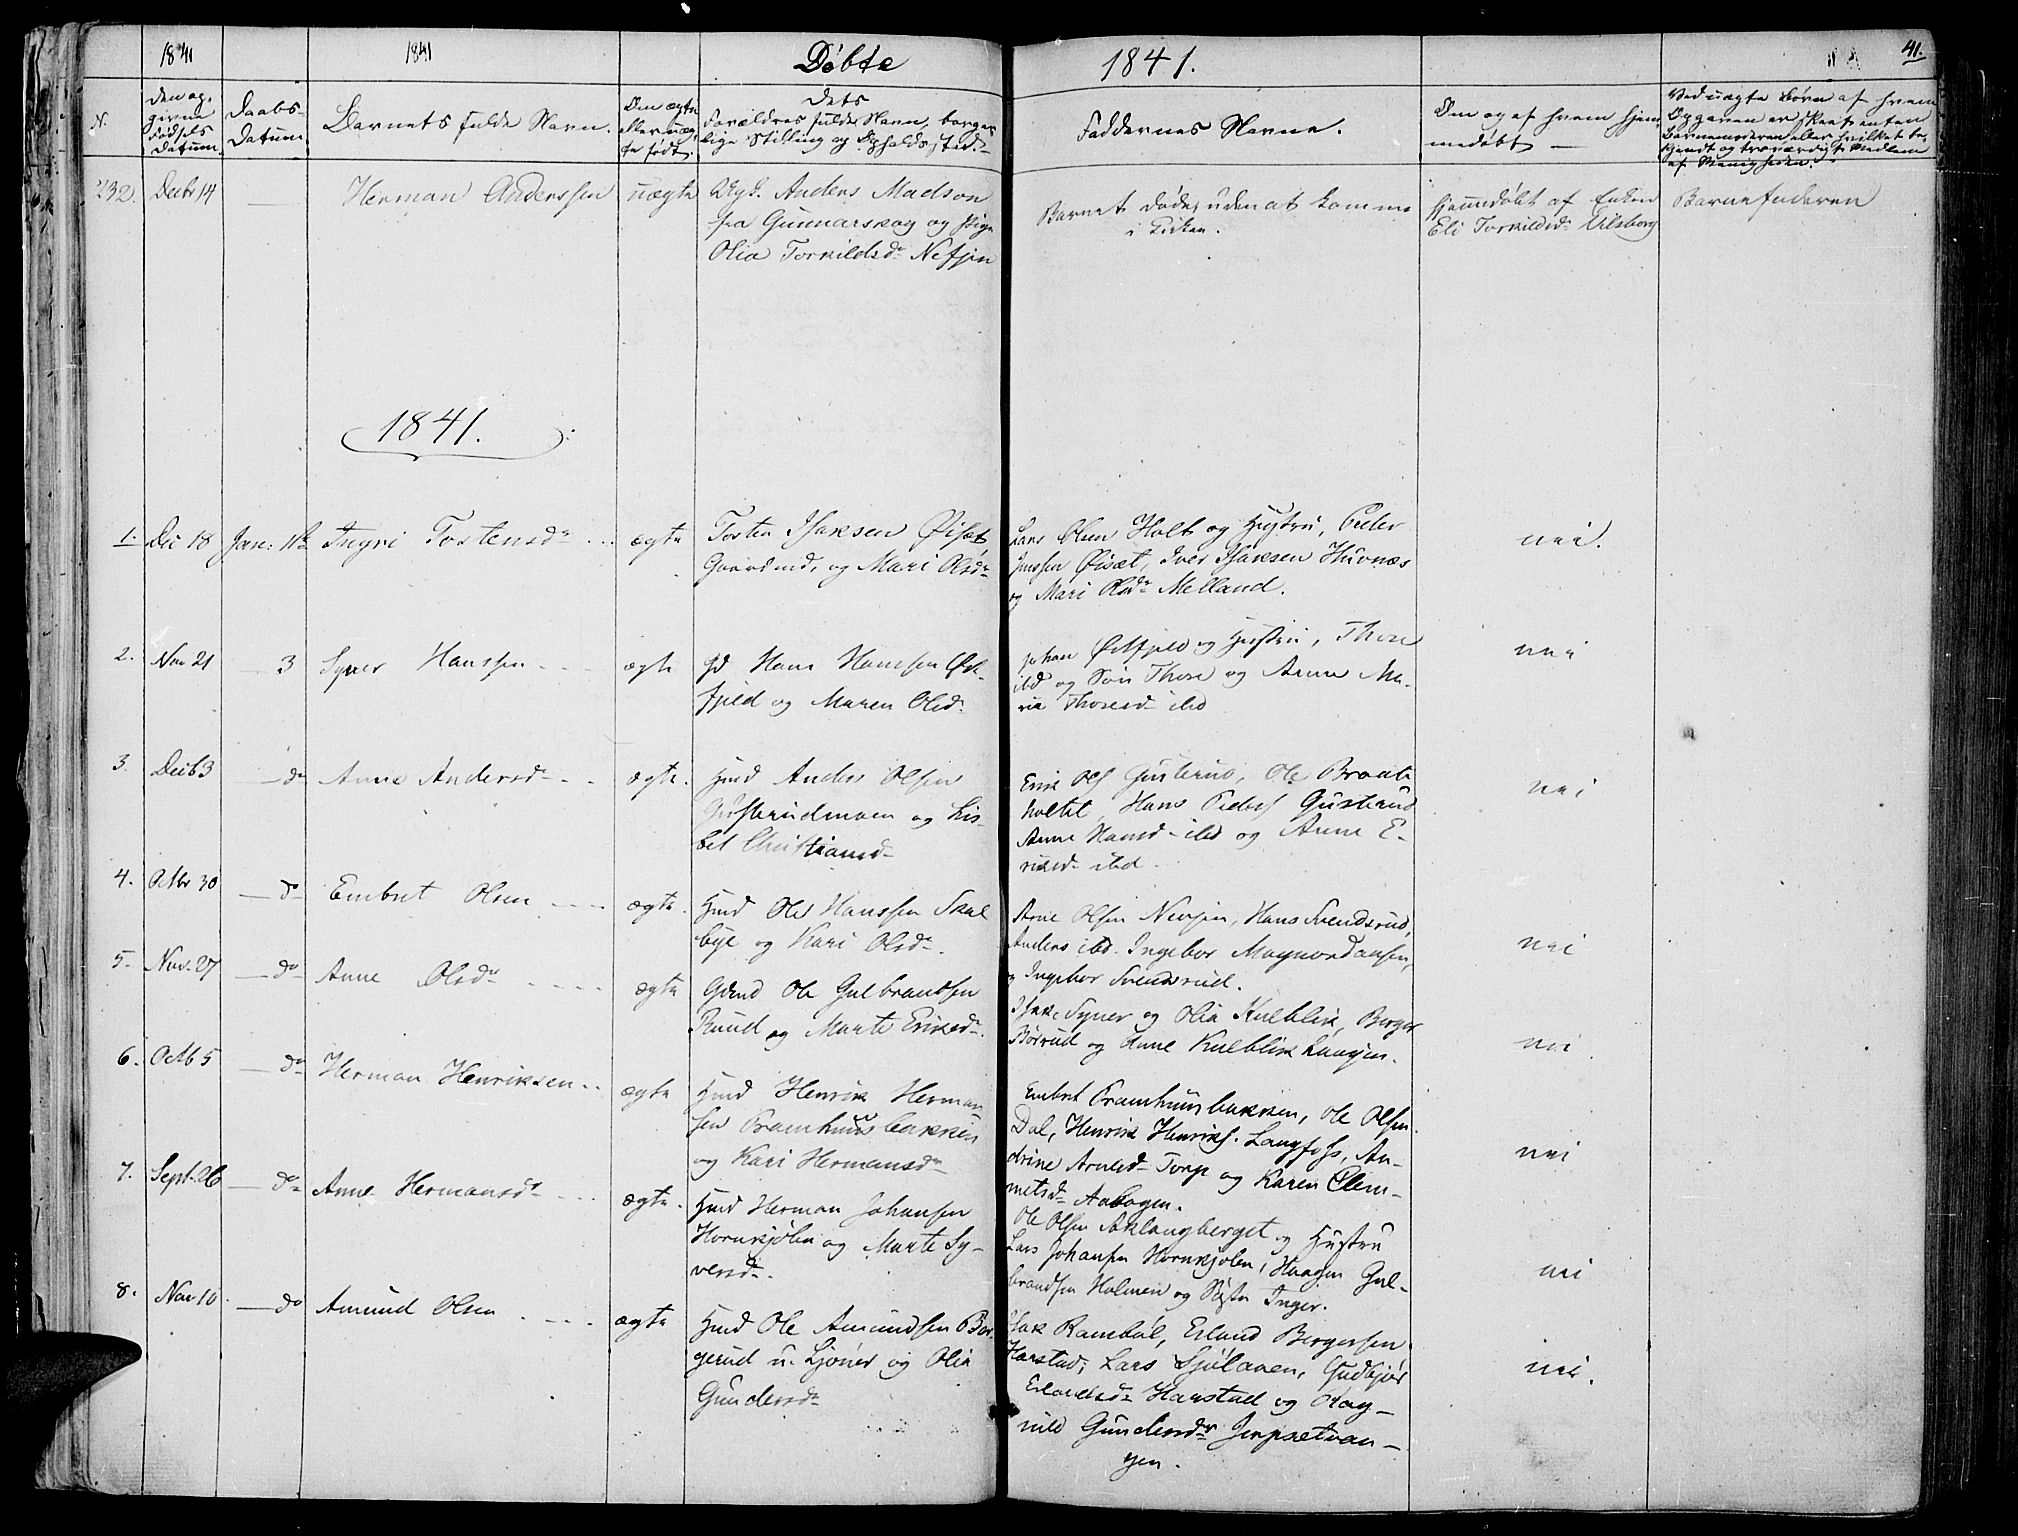 1841 1841 Döbte 1841. 41.
N.
Den op-
givne
Födsels
Datum.
Daabs-
Datum.
Barnets fulde Navn.
Om ægte
eller uæg-
te født.
Dets
Forældres fulde Navn, borger-
lige Stilling og Opholds sted.
Faddernes Navne.
Om og af hvem hjem-
medøbt
Ved uægte Börn af hvem
Opgaven er skeet enten
Barnemoderen eller hvilket be-
kjendt og troværdigt Medlem
af Menigheden.
232. Decbr 14 — Herman Anderssen uægte
Anders Madson
fra Gunnarskog og Pige
Olia Torkildsd. Nefjen
Barnet döde, uden at komme
i Kirken.
hjemmedöbt af Enken
Eli Torkildsd.
Barnefaderen
1841.
1. Dec 18 Jan: 1ste Ingri Tostensd. ægte
Tosten Isaksen Öisæt
Gaardmd, og Mari Olsd.
Lars Olsen Holt og Hustru, Peder
Jenssen Öisæt, Iver Isaksen Huvnæs
og Mari Olsd. Melland.
nei.
2. Nov 21 — 3 Syver Hanssen ægte
Gd Hans Hanssen Öst-
fjeld og Maren Olsd.
Johan Östfjeld og Hustru, Thore
ibd og Sön Thore og Anne Ma-
ria Thoresd. ibd
nei
3. Decb 3 — do Anne Andersd. ægte.
Hmd Anders Olsen
Gusterudmoen og Lis-
bet Christiansd.
Erik Ols Gusterud, Ole Braate
holtet, Hans Peders Gusterud
Anne Hansd. ibd og Anne E-
riksd. ibd.
nei
4. Octbr 30 — do Embret Olsen ægte.
Hmd Ole Hanssen Skul
bye og Kari Olsd.
Arne Olsen Nersjen, Hans Svendsrud,
Anders ibd. Ingebor Magnordansen,
og Ingebor Svendsrud.
nei
5. Nov. 27 — do Anne Olsd. ægte
Gdmd Ole Gulbrandsen
Ruud og Marte Eriksd.
Isak, Syver og Olia Kulblik, Berger
Börrud og Anne Kulblik Laasjen.
nei.
6. Octb 5 — do Herman Henriksen ægte
Hmd Henrik Herman
sen Pramhuusbakken
og Kari Hermansd.
Embret Pramhuusbakken, Ole Olsen
Dal, Henrik Henriks. Langfoss, An-
drine Arnesd. Torp og Karen Clem-
metsd. Aabogen.
nei
7. Sept. 26 — do Anne Hermansd. ægte.
Hmd Herman Johansen
Hornkjölen og Marte Sy-
versd.
Ole Olsen Aklangberget og Hustru
Lars Johansen Hornkjölen, Haagen Gul-
brandsen Holmen og Söster Inger.
nei
8. Nov 10. — do Amund Olsen ægte
Hmd Ole Amundsen Bor-
gerud u. Ljöner og Olia
Gundersd.
Isak Ramböl, Erland Bergersen
Harstad, Lars Sjölaven, Gudbjör
Erlandsd. Harstad og Rag-
nild Gundersd. Jerpsetvan-
gen.
nei.